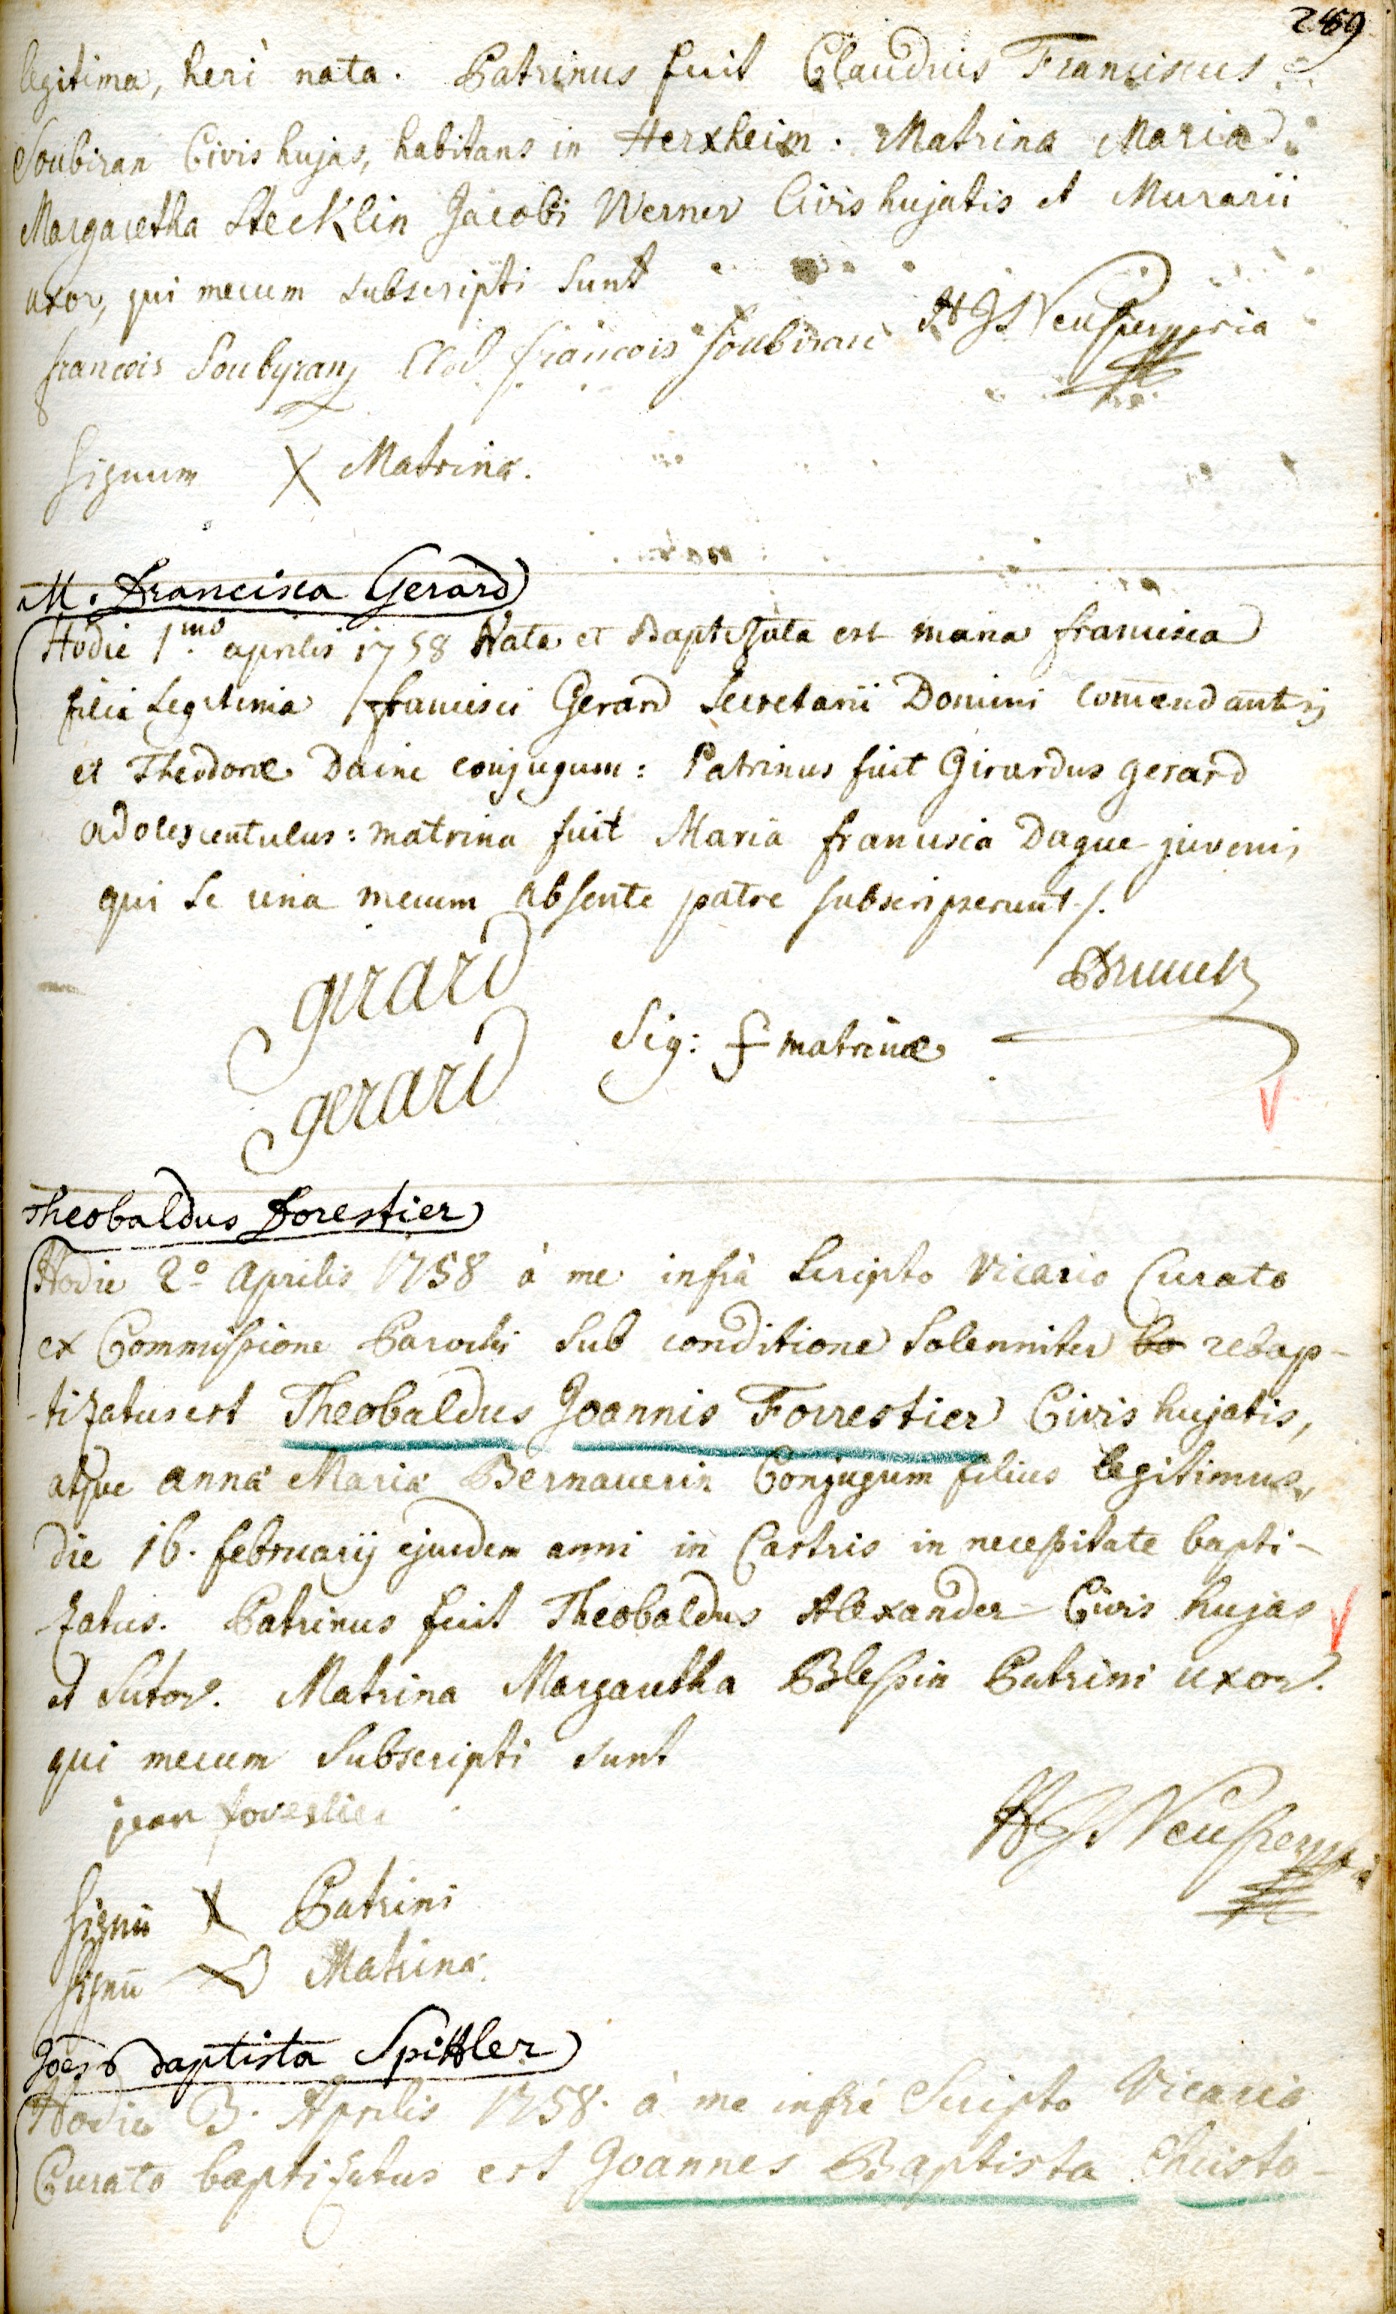 269
legitima, heri nata. Patrinus fuit Claudius Franciscus
Soubiran Civis hujas, habitans in Herxheim. Matrina Maria
Margaretha Stecklin Jacobi Werner Civis hujatis et Murarii
uxor, qui mecum subscripti sunt
francois Soubyran francois Soubiran
Signum X Matrinæ.
M. Francisca Gerard
Hodie 1mo aprilis 1758 Nata et Baptizata est maria francisca
filia Legitima francisci Gerard Secretarii Domini comendantis
et Theodoræ Daine conjugum: Patrinus fuit Girardus gerard
adolescentulus: matrina fuit Maria francisca Dague juvenis
qui se una mecum absente patre subscripserunt /.
girard
Sig: matrinæ
gerard
Theobaldus Forestier
Hodie 2º Aprilis 1758 à me infrà Scripto Vicario Curato
ex Commissione Parochi sub conditione solenniter ba rebap-
-tizatus est Theobaldus Joannis Forrestier Civis hujatis,
atque anna Maria Bernauerin Conjugum filius legitimus,
die 16. februarij ejusdem anni in Castris in necessitate bapti-
-zatus. Patrinus fuit Theobaldus Alexander Civis hujas
et Sutor. Matrina Margaretha Blessin Patrini uxor.
qui mecum Subscripti sunt
jean forestier
Signū X Patrini
Signū Matrinæ.
Joês Baptista Spittler
Hodie 3. Aprilis 1758. à me infrà Scripto Vicario
Curato baptizatus est Joannes Baptista Christo-